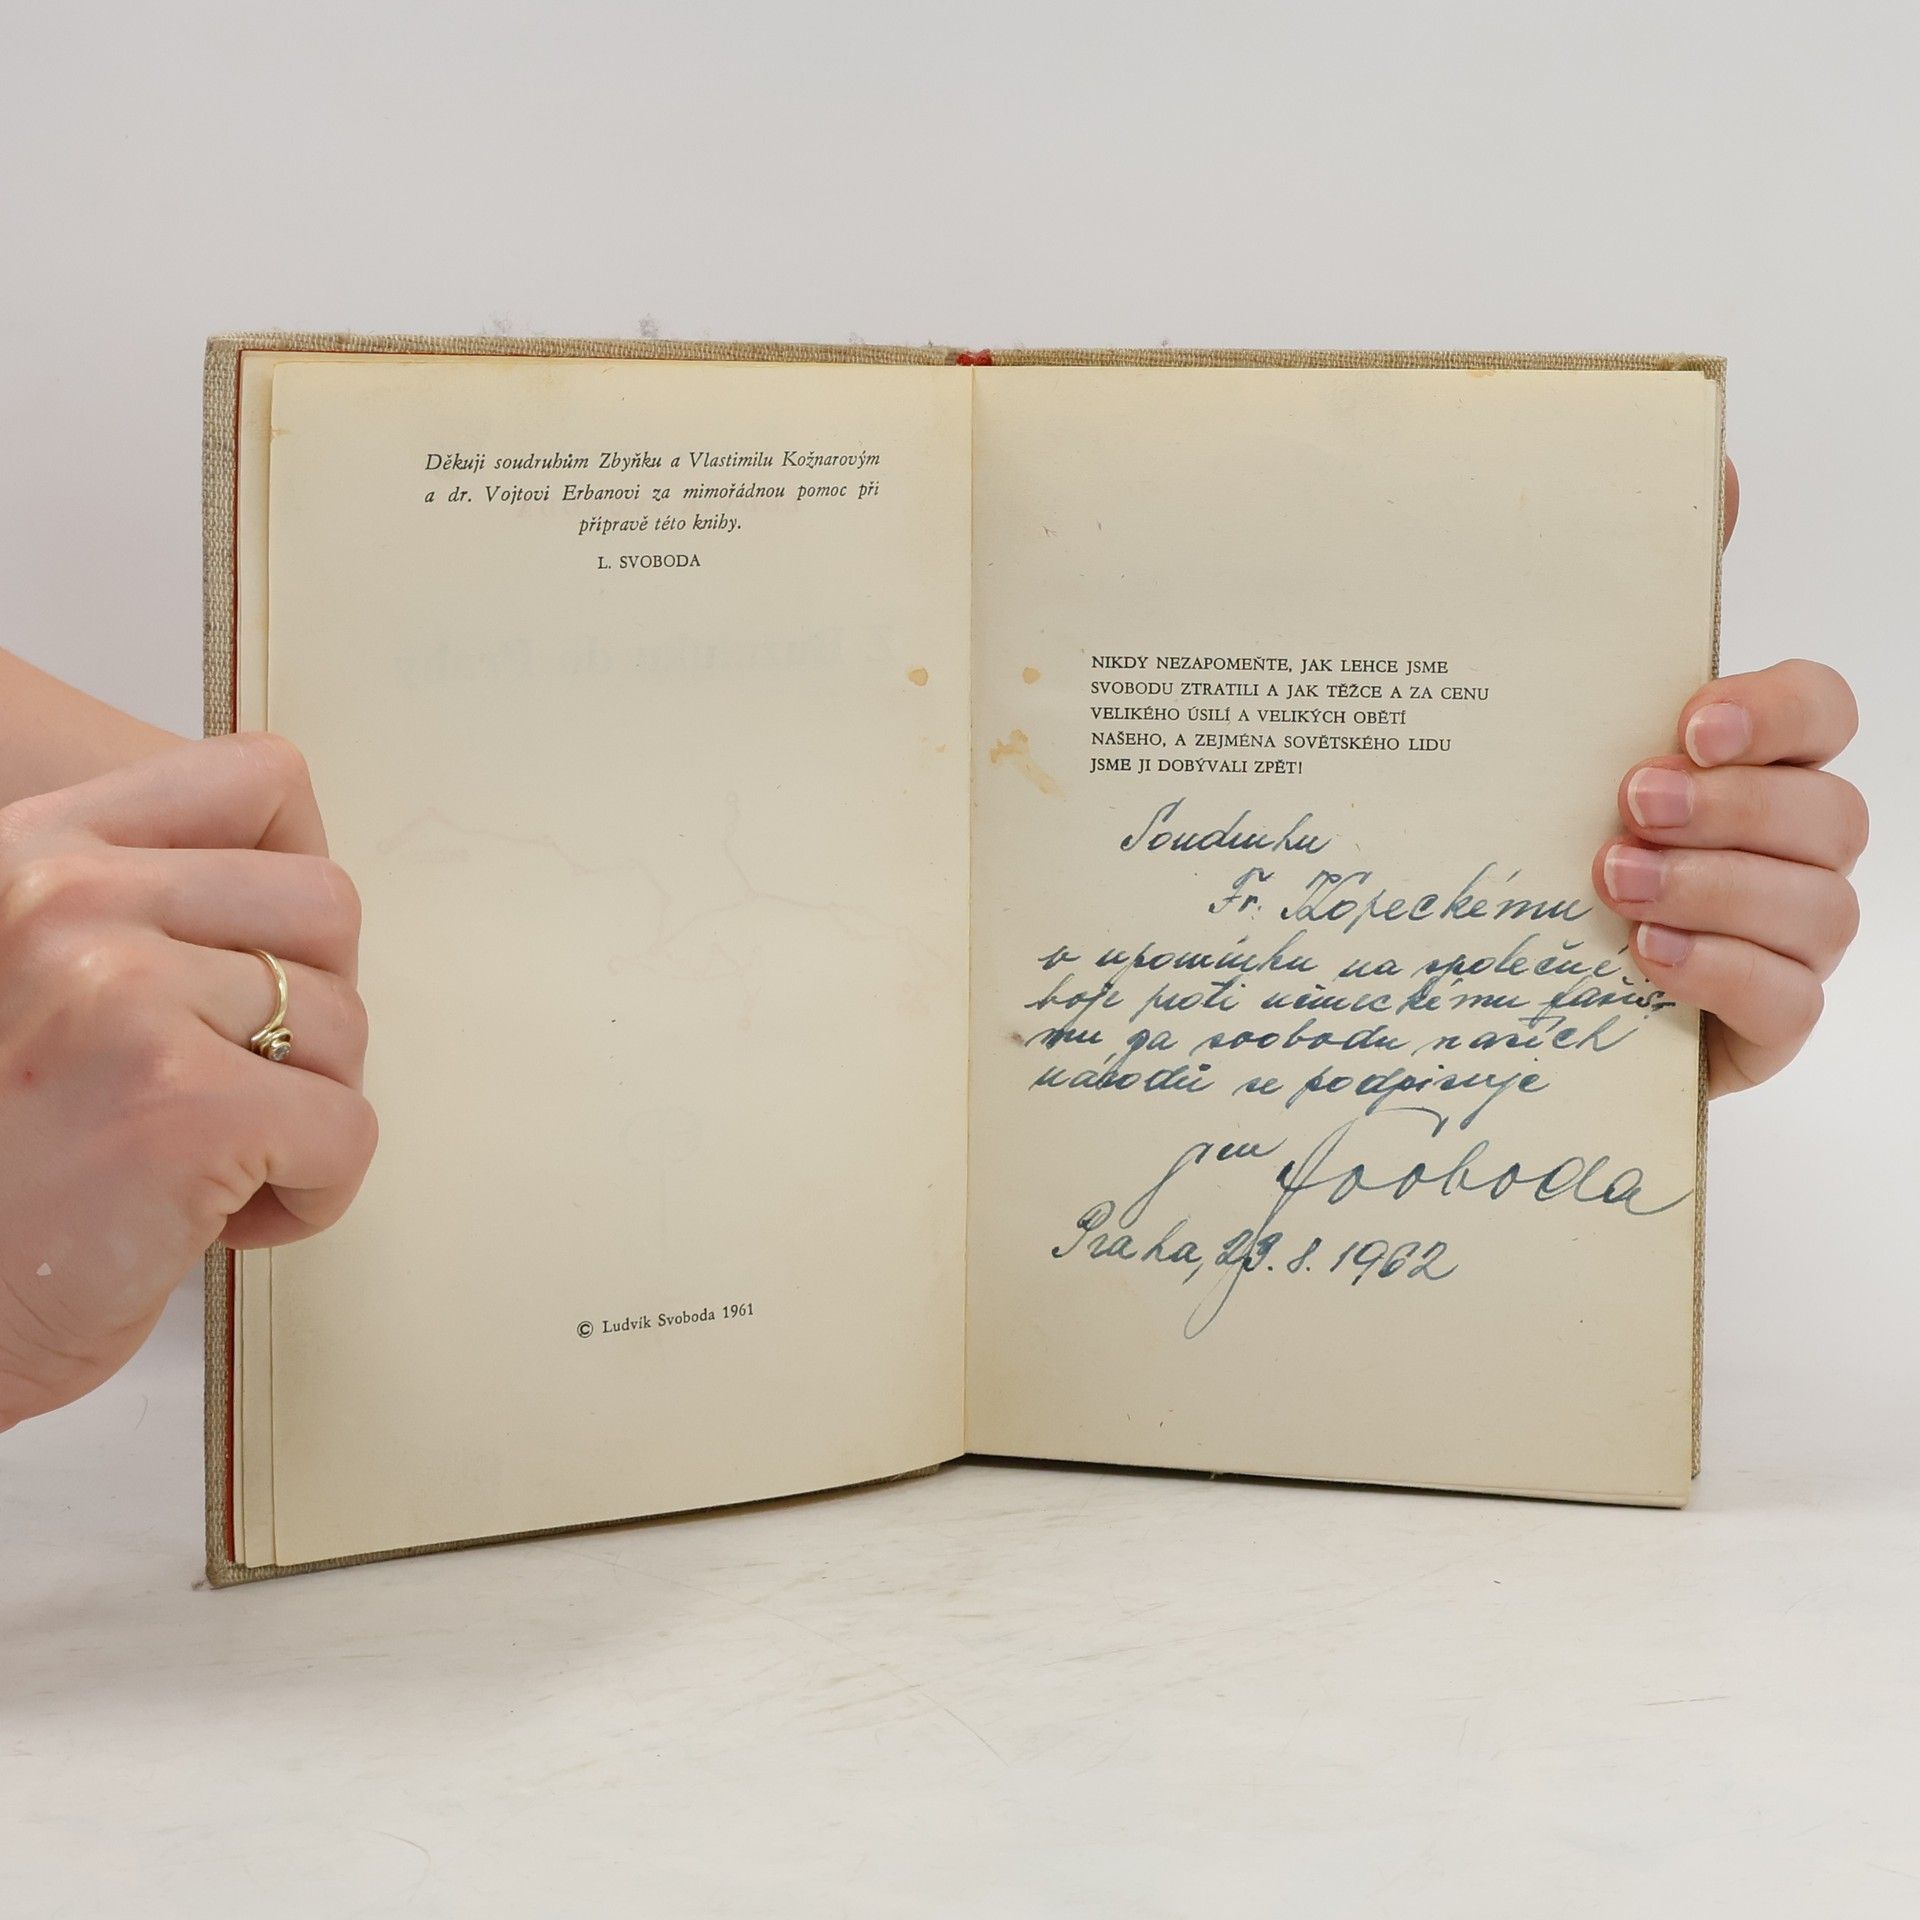 Děkuji soudruhům Zbyňku a Vlastimilu Kožnarovým
a dr. Vojtovi Erbanovi za mimořádnou pomoc při
přípravě této knihy.
L. SVOBODA
© Ludvík Svoboda 1961
NIKDY NEZAPOMEŇTE, JAK LEHCE JSME
SVOBODU ZTRATILI A JAK TĚŽCE A ZA CENU
VELIKÉHO ÚSILÍ A VELIKÝCH OBĚTÍ
NAŠEHO, A ZEJMÉNA SOVĚTSKÉHO LIDU
JSME JI DOBÝVALI ZPĚT!
Soudruhu
Fr. Kopeckému
v upomínku na společné
boje proti německému fašis-
mu, za svobodu našich
národů se podpisuje
gen Svoboda
Praha, 23. 8. 1962